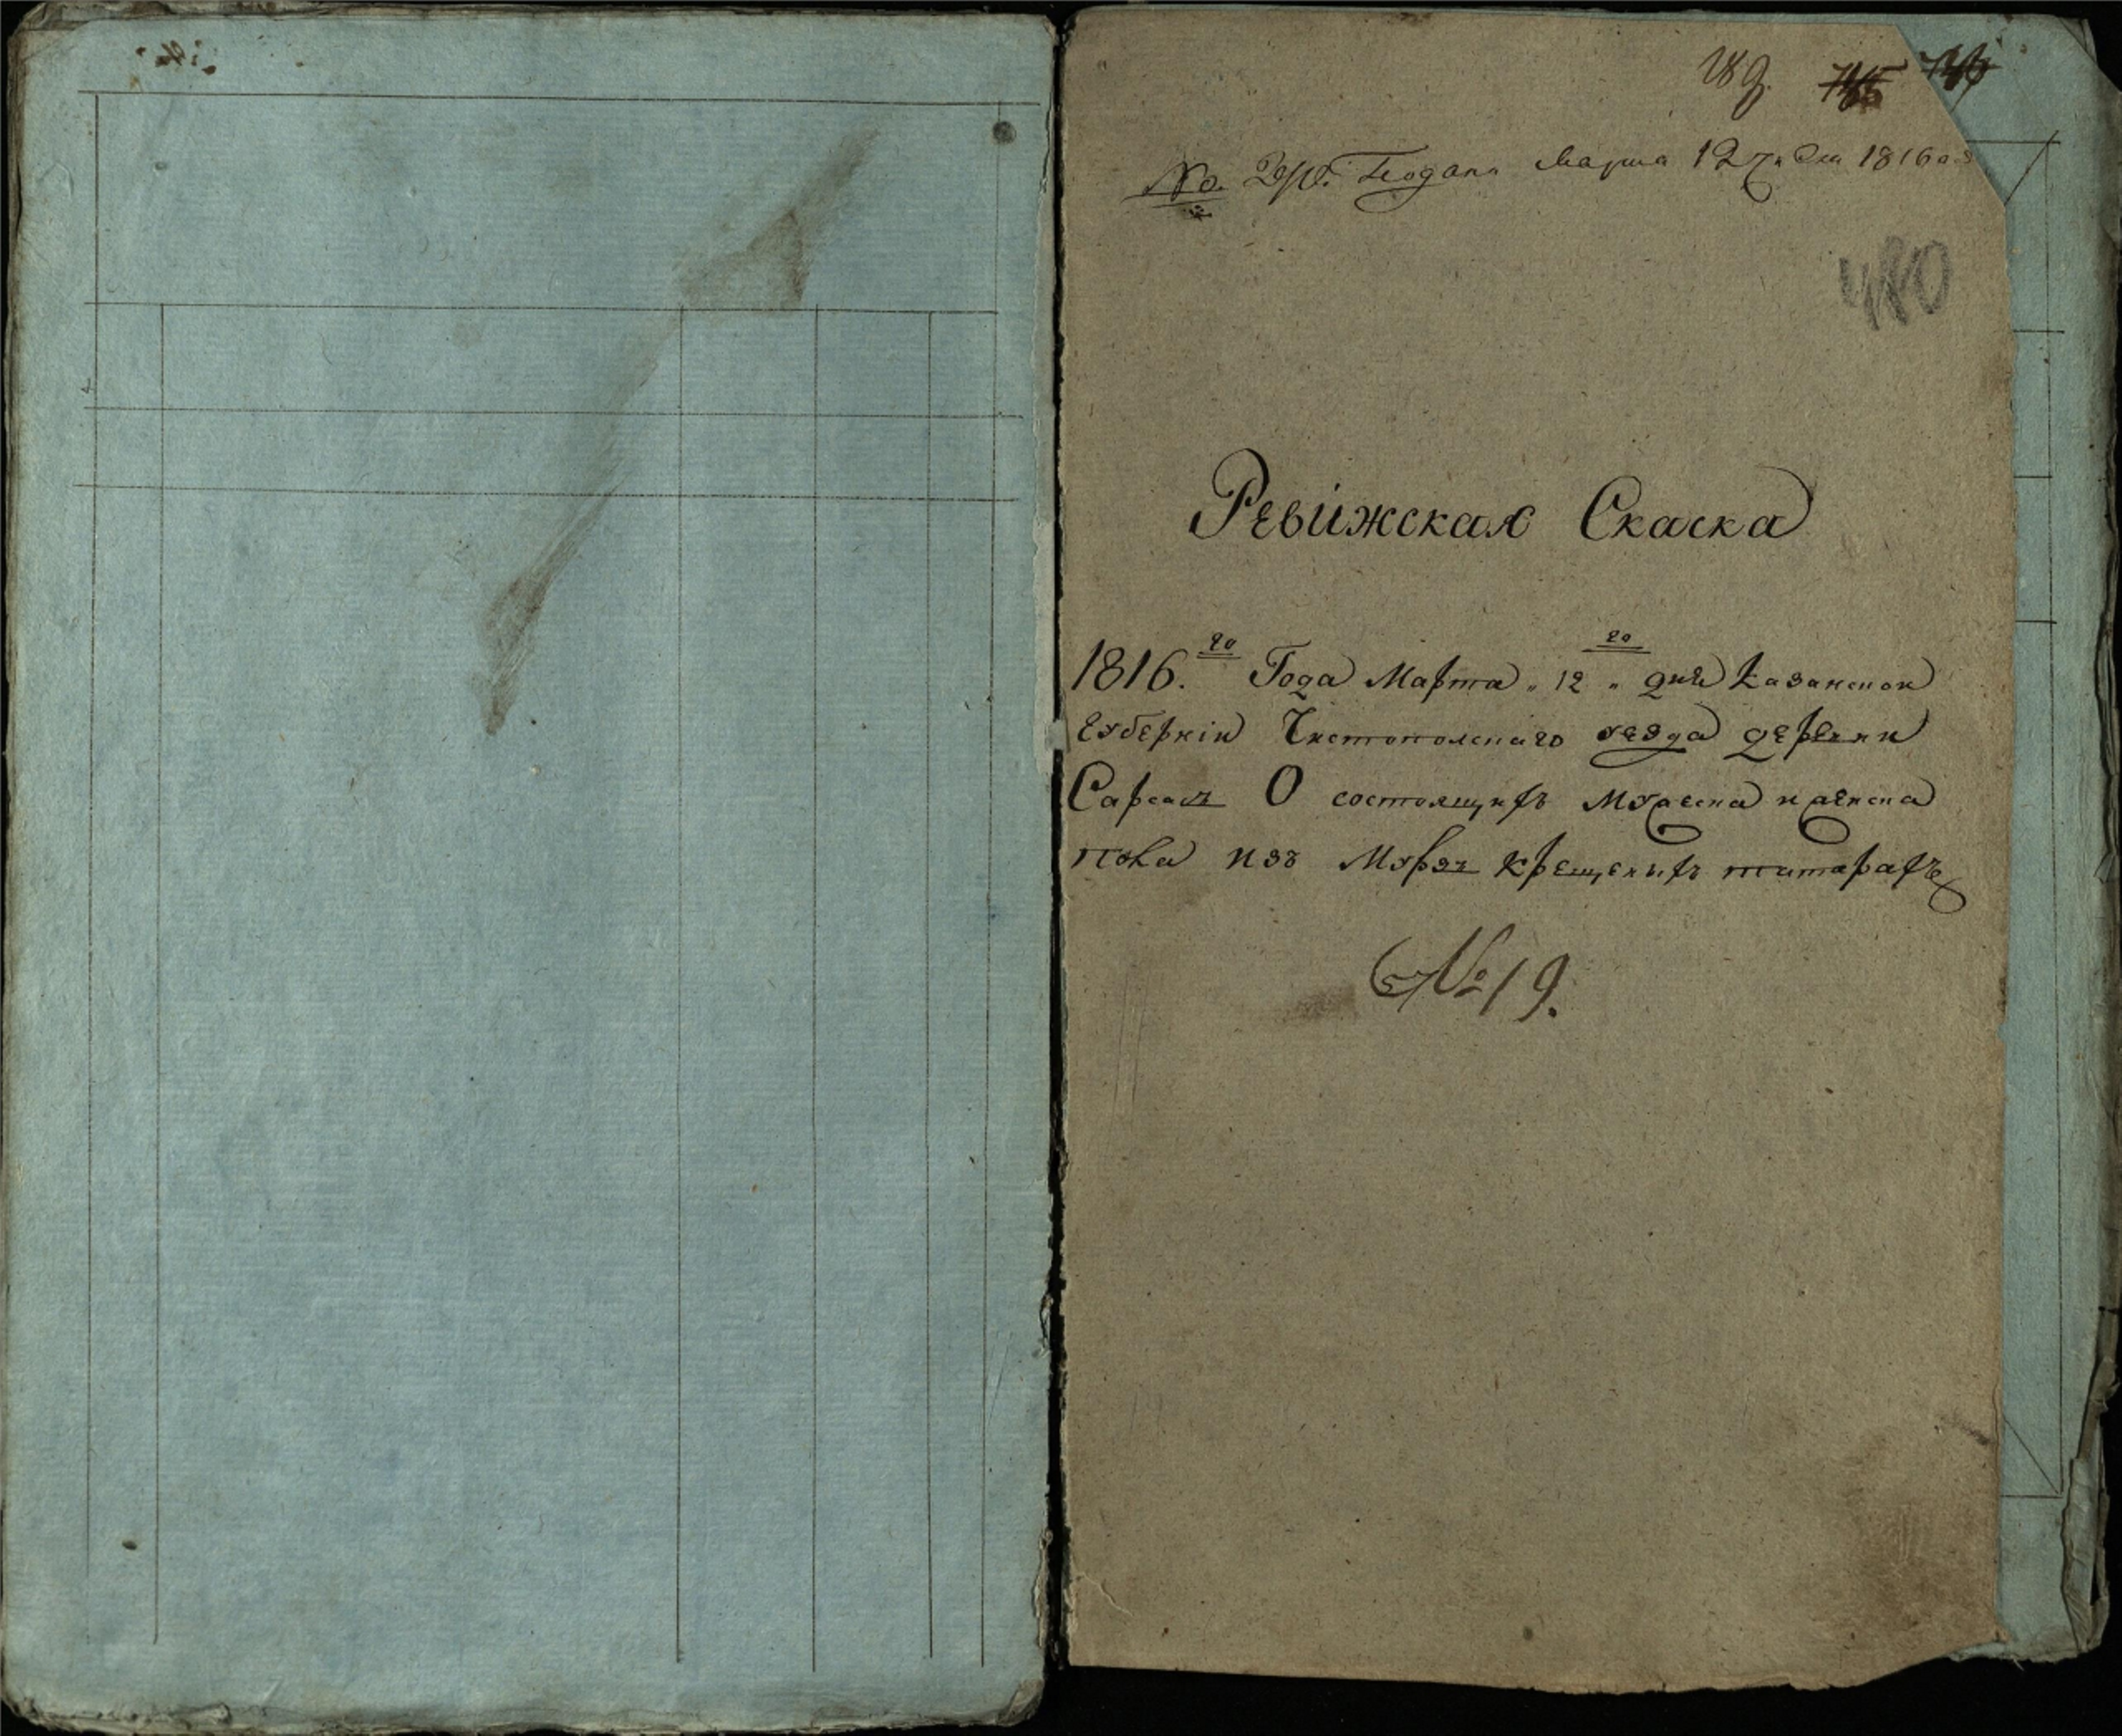 189. 745 746
Подана Марта 12 дня 1816 го
480
Ревижская Скаска
1816.го Года Марта „ 12 „ го дня Казанской
губернiи Чистополскаго уезда деревни
Сарсаз О состоящихъ мужеска и женска
пола изъ Мурзъ крещеныхъ татарахъ
№ 19.